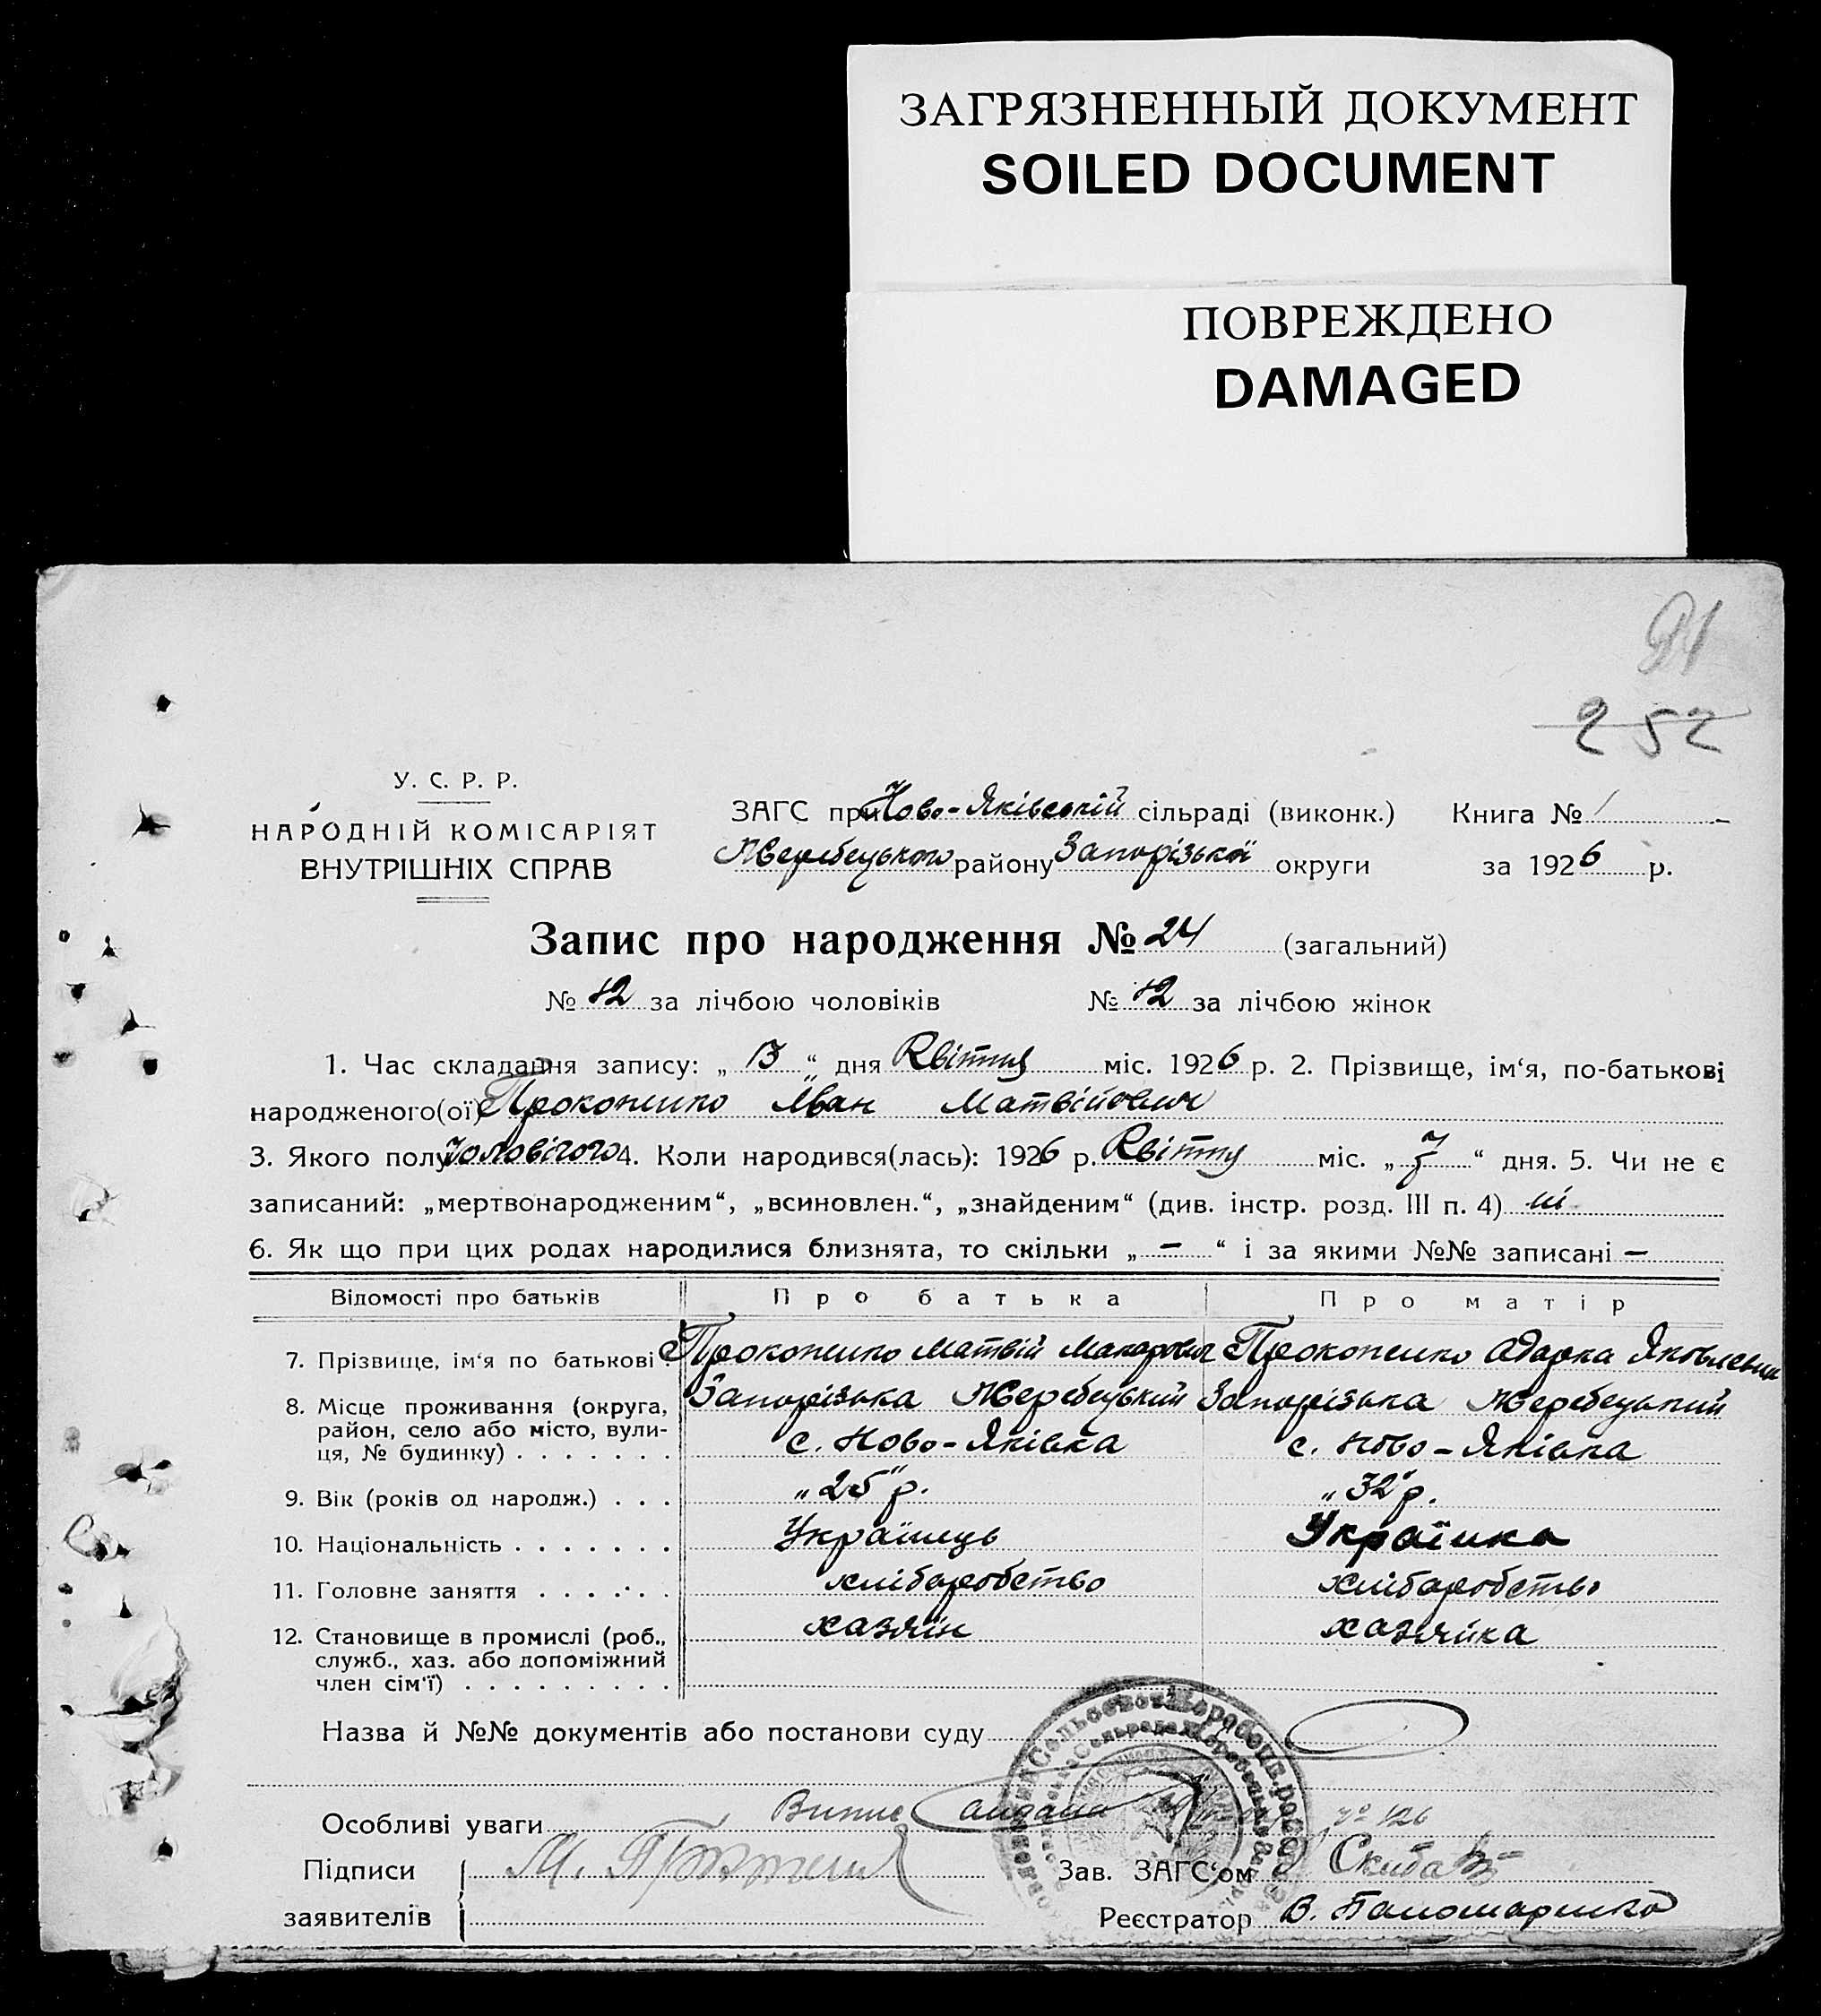 ЗАГРЯЗНЕННЫЙ ДОКУМЕНТ
SOILED DOCUMENT
ПОВРЕЖДЕНО
DAMAGED
91
252
У. С. Р. Р.
НАРОДНІЙ КОМІСАРІЯТ
ВНУТРІШНІХ СПРАВ
ЗАГС при Ново-Яківській сільраді (виконк.) Книга № 1
Жеребецького району Запорізької округи за 1926 р.
Запис про народження № 24 (загальний)
№ 12 за лічбою чоловіків № 12 за лічбою жінок
1. Час складання запису: „ 13 “ дня Квітня міс. 1926 р. 2. Прізвище, ім‘я, по-батькові
народженого(ої) Прокопенко Іван Матвійович
3. Якого полу Чоловічого 4. Коли народився(лась): 1926 р. Квітня міс. „ 7 “ дня. 5. Чи не є
записаний: „мертвонародженим“, „всиновлен.“, „знайденим“ (див. інстр. розд. III п. 4) ні
6. Як що при цих родах народилися близнята, то скільки „ — “ і за якими №№ записані —
Відомості про батьків Про батька Про матір
7. Прізвище, ім‘я по батькові Прокопенко Матвій Макарович Прокопенко Одарка Яковлевна
8. Місце проживання (округа, Запорізька Жеребецький Запорізька Жеребецький
район, село або місто, вули-
ця, № будинку) . . . . . . . с. Ново-Яківка с. Ново-Яківка
9. Вік (років од народж.) . . . „25“ р. „32“ р.
10. Національність . . . . . . . Українець Українка
11. Головне заняття . . . . . . хліборобство хліборобство
12. Становище в промислі (роб., хазяїн хазяйка
служб., хаз. або допоміжний
член сім‘ї) . . . . . . . . .
Назва й №№ документів або постанови суду
Особливі уваги Випис видана № 126
Підписи М. Зав. ЗАГС‘ом Скиба
заявителів Реєстратор В. Паномаренко